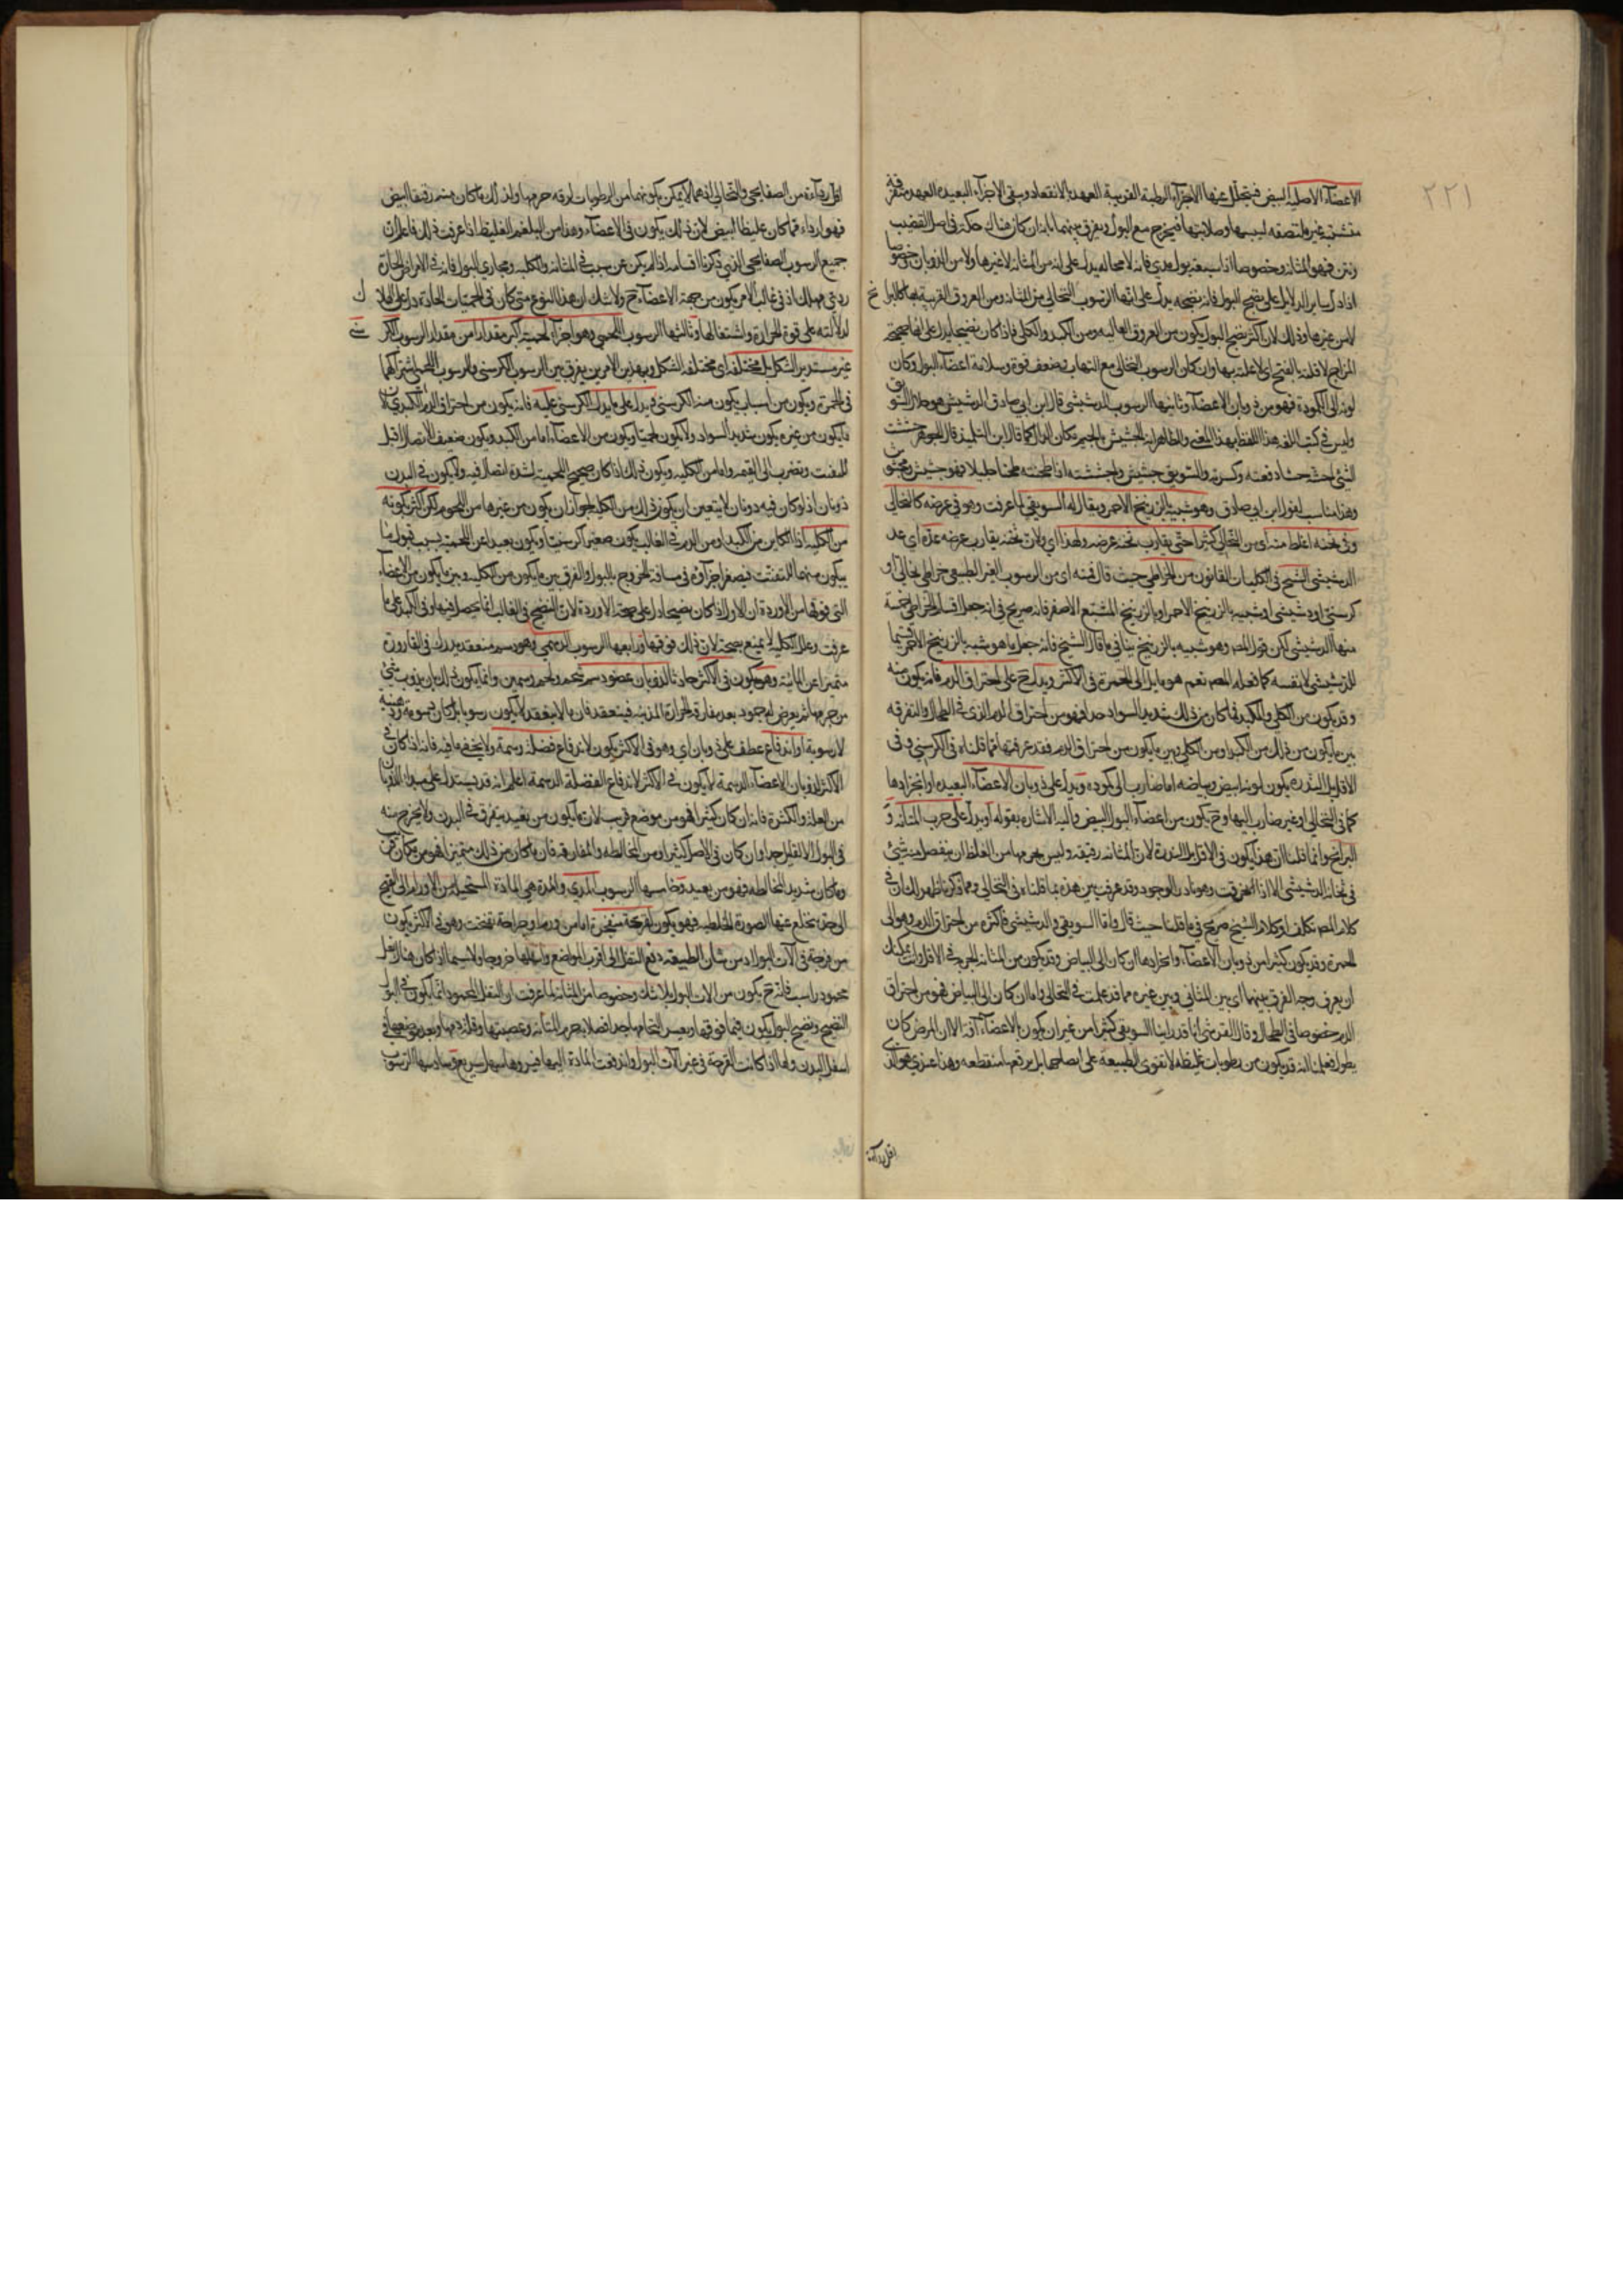 ٢٢١
الاعضاء الاصلية البيض فيتحلل عنها الاجزاء الرطبة القريبة العهد بالانعقاد ويبقى الاجزاء البعيدة العهد متفرقة
متشتتة غير ملتصقة ليبسها وصلابتها فيخرج مع البول ويفرق بينهما بانه ان كان هناك حكة في اصل القضيب
ونتن فهو للمثانة وخصوصا اذا سبقه بول مدي فانه لا محالة يدل على انه من المثانة لا غيرها ولا من الذوبان خصوصا
اذا دل ساير الدلايل على نضج البول فانه بنضجه يدل على انها الرسوب النخالي من المثانة ومن العروق القريبة بها كالبرابخ
لا من غيرها وذلك لان اكثر نضج البول يكون من العروق العالية ومن الكبد والكلى فاذا كان نضيجا يدل على انها صحيحة
المزاج لا قلبة بالفتح اي لا علة بها وان كان الرسوب النخالي مع التهاب وضعف قوة وسلامة اعضاء البول وكان
لونه الى الكمودة فهو من ذوبان الاعضاء وثانيها الرسوب الدشيشي قال ابن ابي صادق الدشيش هو جلال السويق
وليس في كتب اللغة هذا اللفظ بهذا المعنى والظاهر انه الجشيش بالجيم مكان الدال كما قال ابن التلميذ قال الجوهري جششت
الشئ اجشه جشا دققته وكسرته والسويق جشيش واجششته اذا طحنته طحنا جليلا فهو جشيش ومجشوش
وهذا مناسب لقول ابن ابي صادق وهو شبيه بالزرنيخ الاحمر ويقال له السويقي لما عرفت وهو في عرضه كالنخالي
وفي ثخنه اغلظ منه اي من النخالي كثيرا حتى يقارب ثخنه عرضه ولهذا اي ولان ثخنه يقارب عرضه عده اي عد
الدشيشي الشيخ في الكليات القانون من الخراطي حيث قال فمنه اي من الرسوب الغير الطبيعي خراطي نخالي او
كرسني او دشيشي او شبيه بالزرنيخ الاحمر او بالزرنيخ المشبع الاصفر فانه صريح في انه جعل اقسام الخراطي خمسة
منها الدشيشي لكن قول المص وهو شبيه بالزرنيخ ينافي ما قال الشيخ فانه جعل ما هو شبيه بالزرنيخ الاحمر قسيما
للدشيشي لا نفسه كما فعله المص نعم هو مايل الى الحمرة في الاكثر ويدل ح على احتراق الدم فانه يكون منه
وقد يكون من الكلى والكبد فما كان من ذلك شديد السواد جدا فهو من احتراق الدم الذي في الطحال والتفرقة
بين ما يكون من ذلك من الكبد او من الكلى وبين ما يكون من احتراق الدم فقد عرفتها مما قلناه في الكرسني وفي
الاقل بل النذرة يكون لونه ابيض وبياضه اما ضارب الى كمودة ويدل على ذوبان الاعضاء البعيدة او انجرادها
كما في النخالي او غير ضارب اليها وح يكون من اعضاء البول البيض واليه الاشارة بقوله او يدل على جرب المثانة و
البرابخ وانما قلنا ان هذا يكون في الاقل بل الندرة لان المثانة رقيقة وليس جرمها من الغلظ ان ينفصل منه شئ
في ثخانة الدشيشي الا اذا وهو نادر الوجود وقد عرفت بين هذه بما قلناه في النخالي ومما ذكرنا ظهر لك ان في
كلام المص تكلف او كلام الشيخ صريح في ما قلنا حيث قال واما السويقي والدشيشي فاكثره من احتراق الدم وهو الى
الحمرة وقد يكون كثيرا من ذوبان الاعضاء وانجرادها ان كان الى البياض وقد يكون من المثانة الجربة في الاقل وانت يمكنك
ان تعرف وجه الفرق بينهما اي بين المثاني وبين غيره مما قد علمت في النخالي واما ان كان الى البياض فهو من احتراق
الدم خصوصا في الطحال وقال القرشي انا قد راينا السويقي كثيرا من غير ان يكون بالاعضاء آفة الا ان المرض كان
يطول فعلمنا انه قد يكون من رطوبات غليظة لا تقوى الطبيعة على انضاجها بل يدفعها منقطعة وهذا عندي هو الذي
اقل رداءة
اقل رداءة من الصفايحي والنخالي اذ هما لا يمكن تكونهما من الرطوبات لرقة جرمهما ولذلك ما كان منه رقيقا ابيض
فهو اردأ مما كان غليظا ابيض لان ذلك يكون في الاعضاء وهذا من البلغم الغليظ اذا عرفت ذلك فاعلم ان
جميع الرسوب الصفايحي الذي ذكرنا اقسامه اذا لم يكن عن سبب في المثانة والكلية ومجاري البول فانه في الامراض الحادة
ردئ مهلك اذ في غالب الامر يكون من جهة الاعضاء ح ولا شك ان هذا النوع متى كان في الحميات الحادة دل على الهلاك
لدلالته على قوة الحرارة واشتعالها وثالثها الرسوب اللحمي وهو اجزاء لحمية اكبر مقدارا من مقدار الرسوب الكرسني
غير مستدير الشكل بل مختلفة اي مختلفة الشكل وبهذين الامرين يفرق بين الرسوب الكرسني والرسوب اللحمي لاشتراكهما
في الحمرة ويكون من اسباب يكون منه الكرسني ويدل على ما يدل الكرسني عليه فانه يكون من احتراق الدم الكبدي لان
ما يكون من غيره يكون شديد السواد ولا يكون لحميا ويكون من الاعضاء اما من الكبد ويكون ضعيف الاتصال اقبل
للتفتت ويضرب الى القتمة واما من الكلية ويكون ذلك اذا كان صحيح اللحمية لشدة اتصال فيه ولا يكون في البدن
ذوبان اذ لو كان فيه ذوبان لا يتعين ان يكون ذلك من الكلية لجواز ان يكون من غيرها من اللحوم لكن اكثر كونه
من الكلية اذ الكاين من الكبد او من الدم في الغالب يكون صغيرا كرسنيا ويكون بعيدا عن اللحمية بسبب قبول ما
يتكون منهما للتفتت فيصغر اجزاؤه في مسافة الخروج بالبول والفرق بين ما يكون من الكلية وبين ما يكون من الاعضاء
التي فوقها من الاوردة ان الاول اذا كان نضيجا دل على صحة الاوردة لان النضج في الغالب انما يحصل فيها وفي الكبد على ما
عرفت وعلل الكلية لا يمنع بصحة لان ذلك فوقها ورابعها الرسوب الدسمي وهو دسم منعقد يدرك في القارورة
متميزا عن المائية وهو يكون في الاكثر حادثا لذوبان عضو دسم شحم ولحم وسمين وانما يكون ذلك بان يذوب شئ
من جرمها ثم يعرض له جمود بعد مفارقة الحرارة المذيبة فينعقد فان ما لا ينعقد لا يكون رسوبا بل كان دسومة ودهنية
لا رسوبية او اندفاع عطف على ذوبان اي وهو في الاكثر يكون لاندفاع فضلة دسمة ولا يخفى ما فيه فانه اذا كان في
الاكثر لذوبان الاعضاء الدسمة لا يكون في الاكثر لاندفاع الفضلة الدسمة اعلم انه قد يستدل على مبدأ الذوبان
من القلة والكثرة فانه ان كان كثيرا فهو من موضع قريب لان ما يكون من بعيد يتفرق في البدن ولا يخرج منه
في البول الا القليل جدا وان كان في الاصل كثيرا ومن المخالطة والمفارقة فان ما كان من ذلك متميزا فهو من مكان قريب
وما كان شديد المخالطة فهو من بعيد وخامسها الرسوب المدي والمدة هي المادة المستحيلة من الاورام الى القيح
التي ينخلع عنها الصورة الخلطية فهو يكون لقرحة منفجرة اما من ورم او جراحة تقيحت وهو في الاكثر يكون
من قرحة في آلات البول اذ من شان الطبيعة دفع الثفل الى اقرب المواضع واسهلها خروجا ولا سيما اذا كان هناك ثفل
محمود راسب فانه ح يكون من الات البول بلا شك وخصوصا من المثانة لما عرفت ان الثفل المحمود انما يكون في البول
النضيج ونضج البول يكون فيما فوقها ويعسر التحامها جدا لصلابة جرم المثانة وعصبيتها وقلة دمها وبعد موضعها في
اسفل البدن واما اذا كانت القرحة في غير آلات البول واندفعت المادة اليها فبروها سهل سريع وسادسها الرسوب